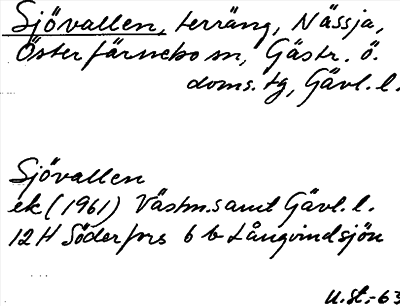 Sjövallen, terräng, Nässja,
Österfärnebo sn, Gästr. ö.
doms. tg, Gävl. l.
Sjövallen
ek (1961) Västm. samt Gävl. l.
12 H Söderfors 6 b Långvindsjön
U.St.-63